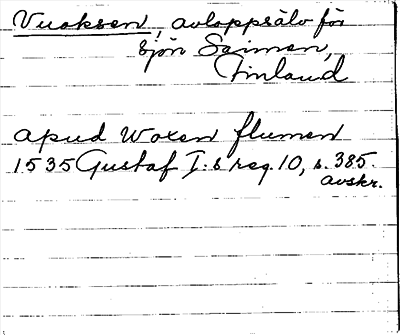 Vuoksen, avloppsälv för
sjön Saimen,
Finland
apud Woxen flumen
1535 Gustaf I:s reg. 10, s. 385.
avskr.